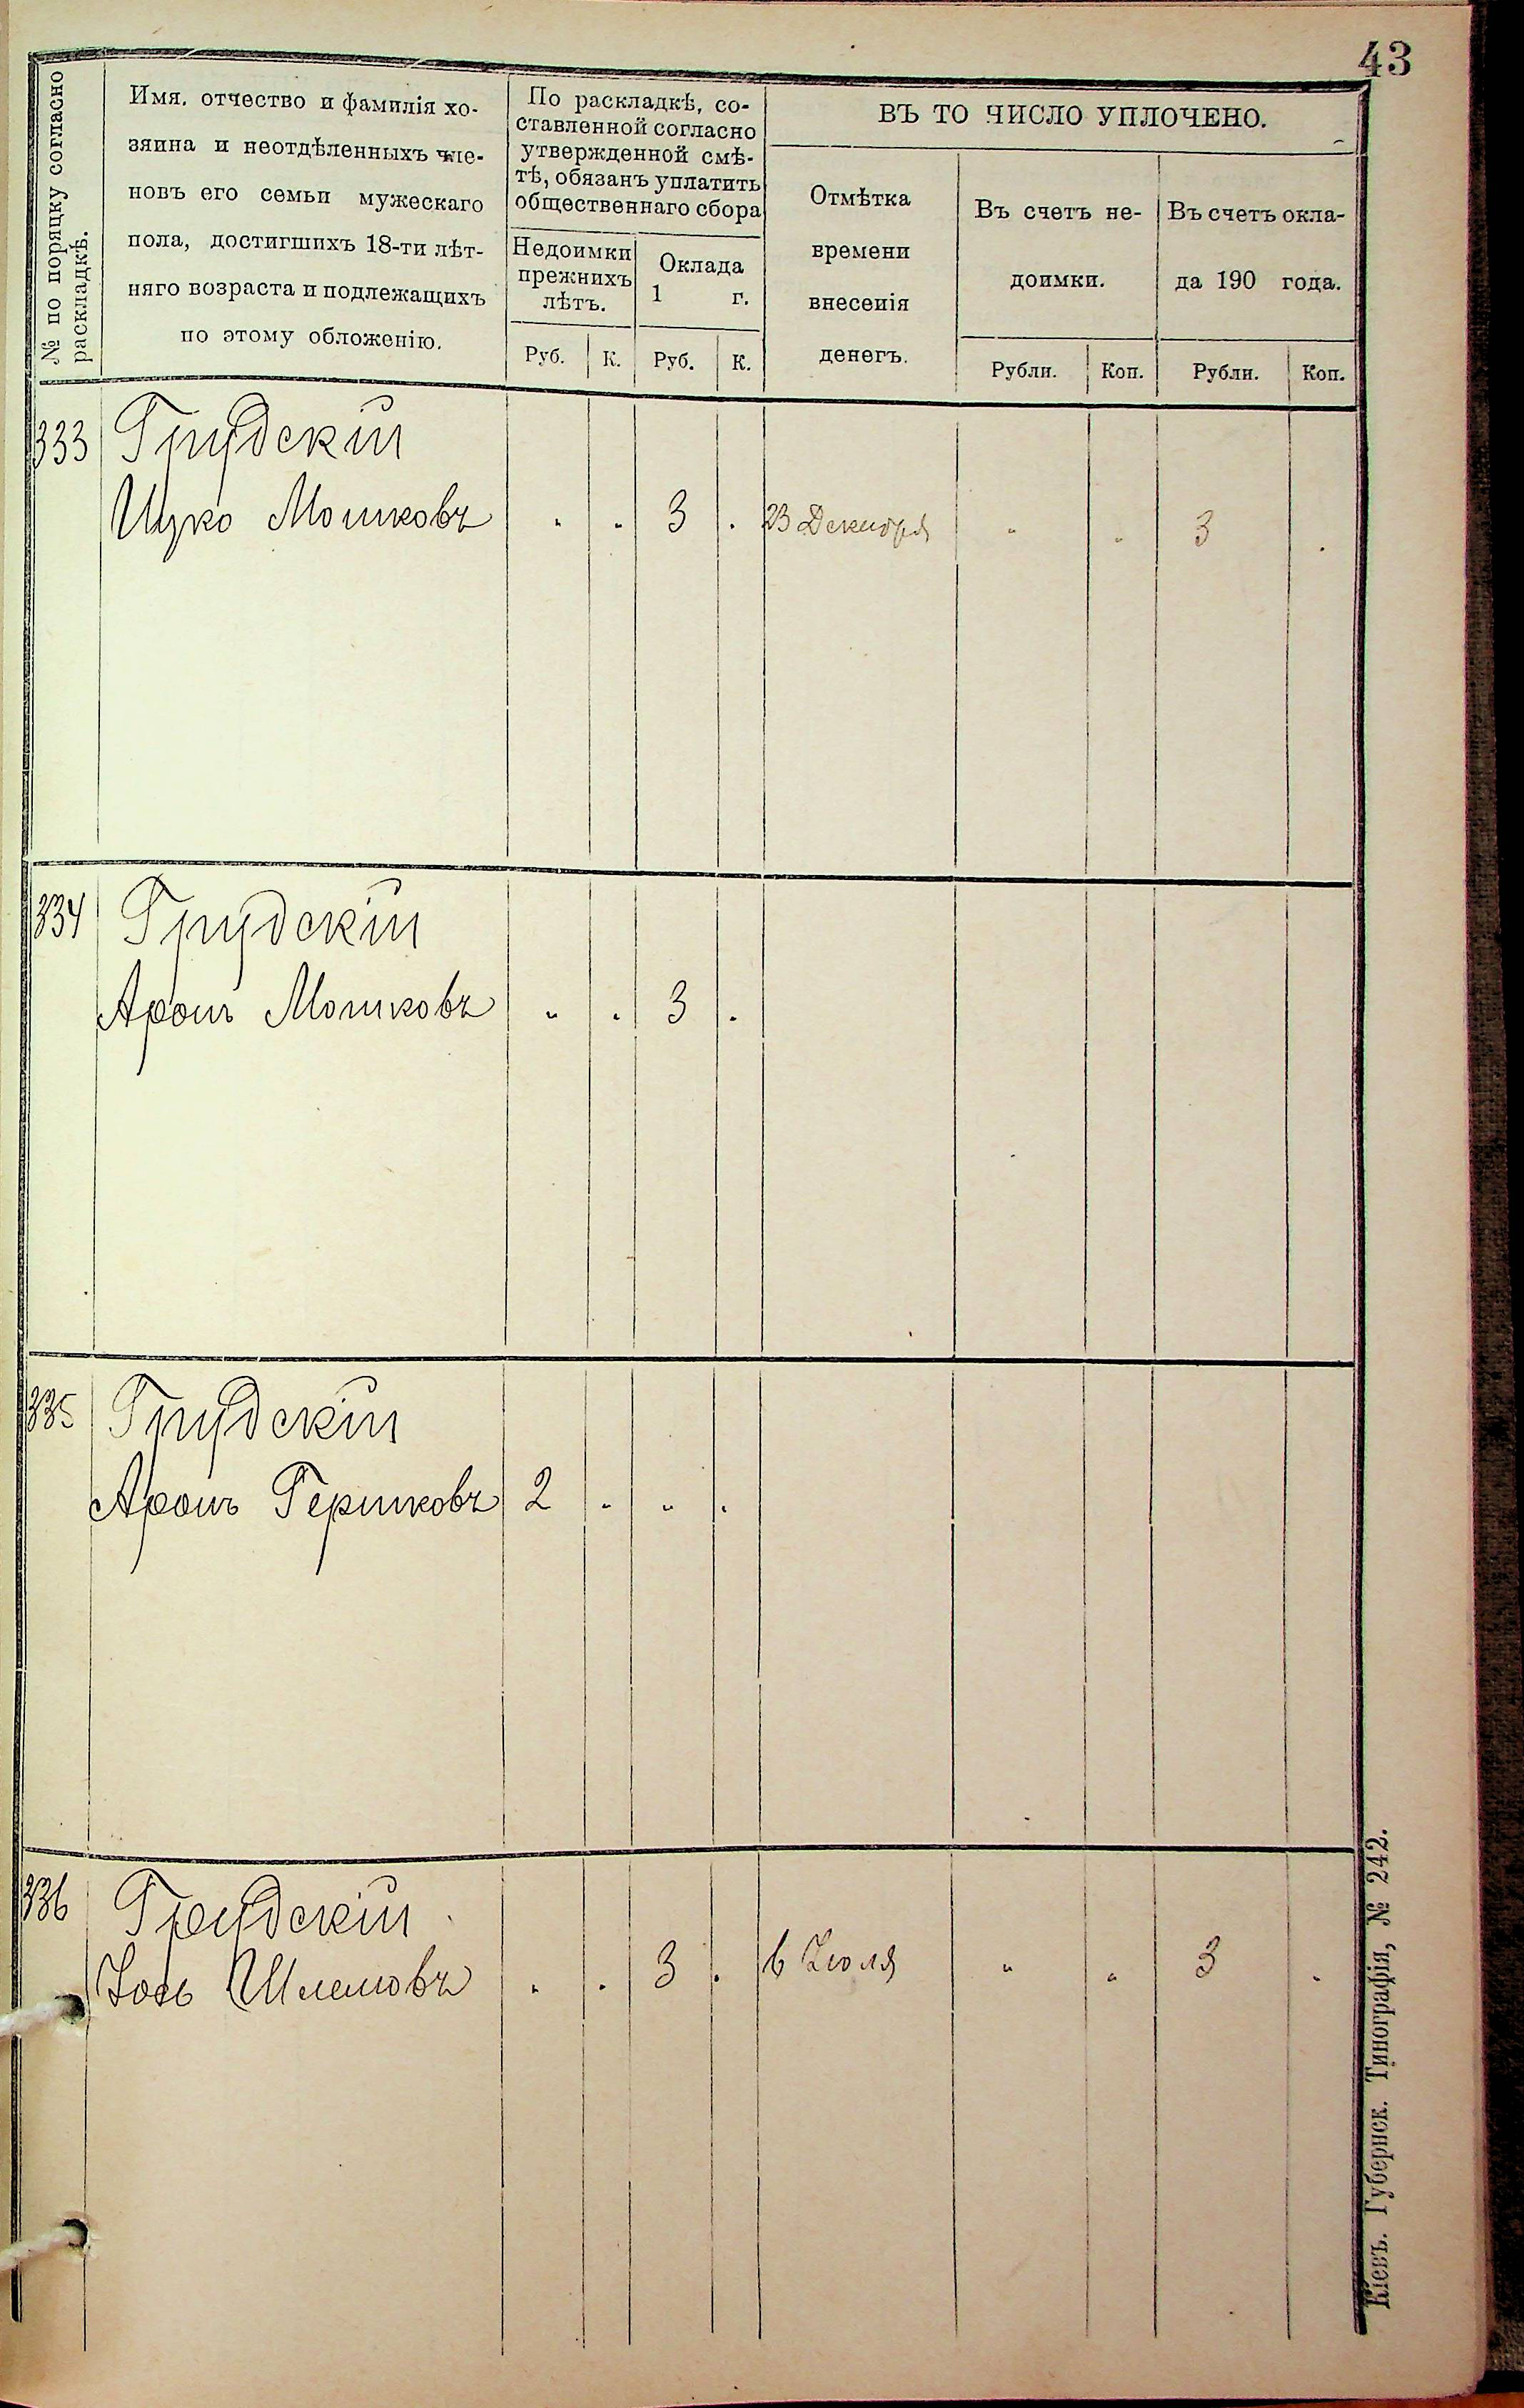 43
№ по порядку согласно
раскладкѣ.
Имя, отчество и фамилія хо-
зяина и неотдѣленныхъ чле-
новъ его семьи мужескаго
пола, достигшихъ 18-ти лѣт-
няго возраста и подлежащихъ
по этому обложенію.
По раскладкѣ, со-
ставленной согласно
утвержденной смѣ-
тѣ, обязанъ уплатить
общественнаго сбора
Недоимки
прежнихъ
лѣтъ.
Оклада
1 г.
Руб. К. Руб. К.
ВЪ ТО ЧИСЛО УПЛОЧЕНО.
Отмѣтка
времени
внесенія
денегъ.
Въ счетъ не-
доимки.
Въ счетъ окла-
да 190 года.
Рубли. Коп. Рубли. Коп.
333 Грудскій
Ицко Мошковъ " " 3 . 23 Декабря " " 3 .
334 Грудскій
Аронъ Мошковъ " . 3 .
335 Грудскій
Аронъ Гершковъ 2 . " .
336 Грудскій
Іось Шлемовъ " . 3 . 6 Іюля " " 3 .
Кіевъ. Губернск. Типографія, № 242.